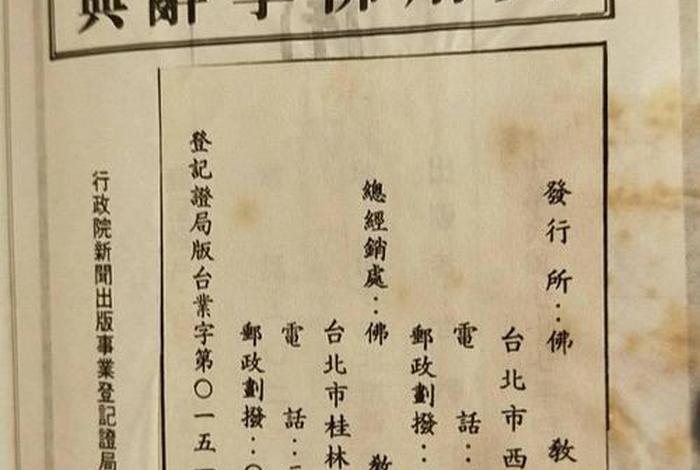 學辭典
發行所：佛教
台北市西
電話：
郵政劃撥：
總經銷處：佛教
台北市桂林
電話：
郵政劃撥：〇
登記證局版台業字第〇一五一
行政院新聞出版事業登記證局